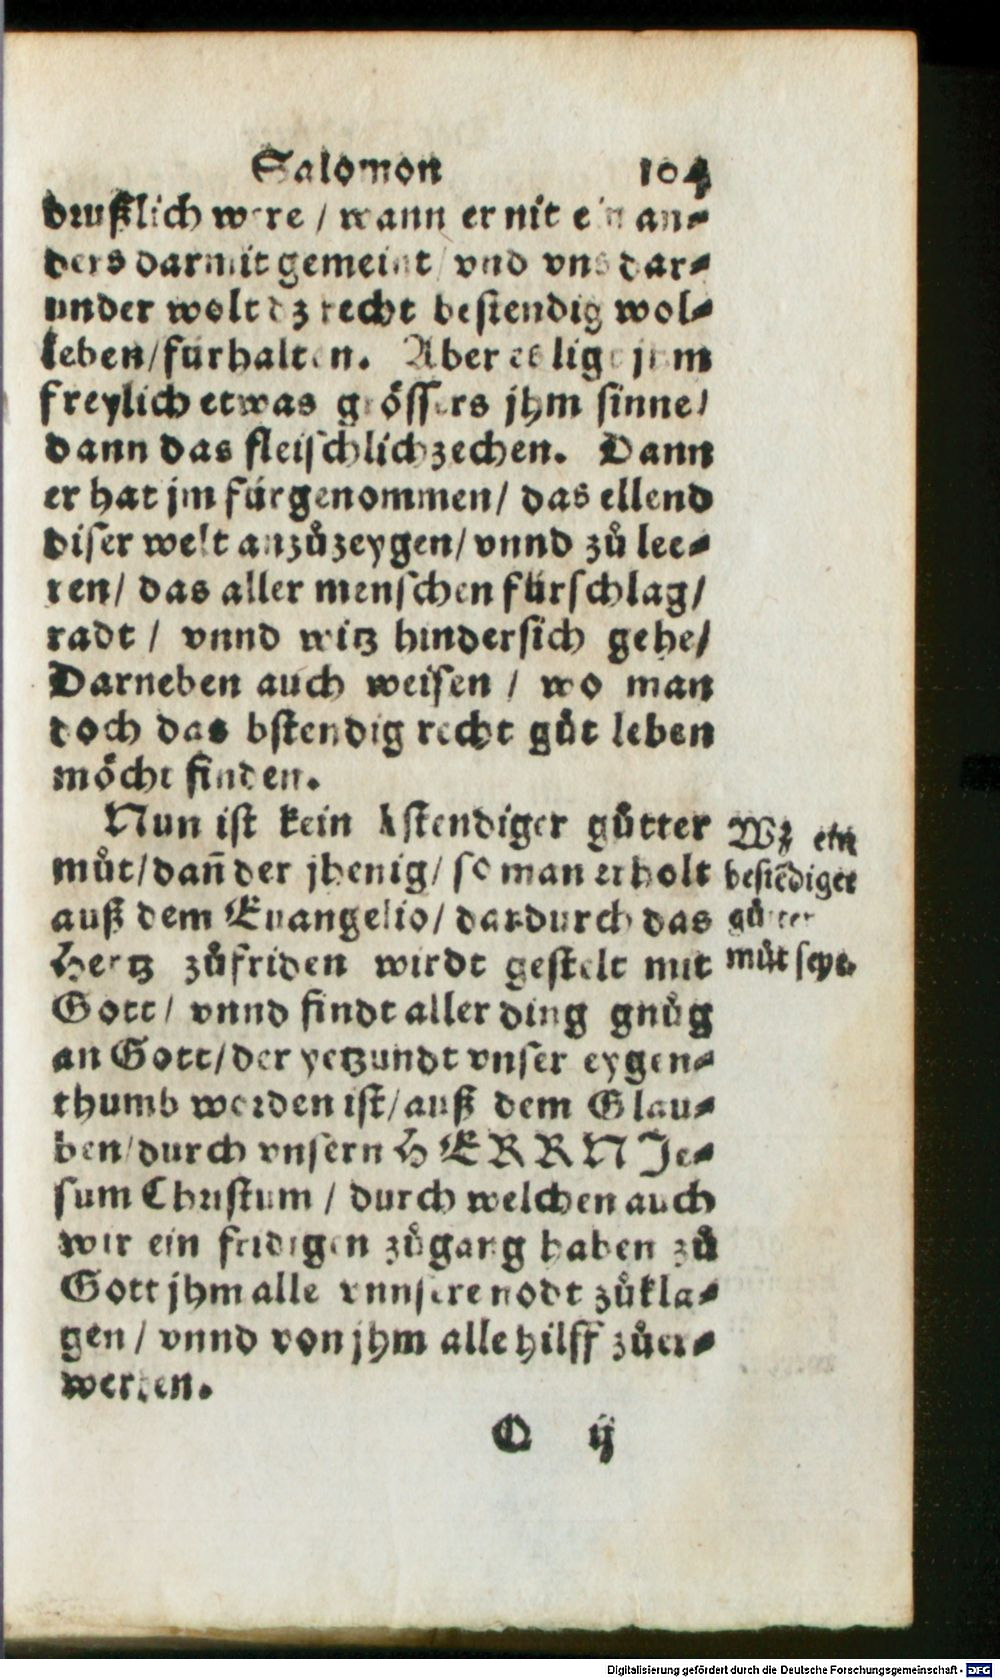 Salomon 104
drußlich were / wann er nit ein an⸗
ders darmit gemeint / vnd vns dar⸗
under wolt dz recht bestendig wol⸗
leben / fürhalten. Aber es ligt jhm
freylich etwas grössers jhm sinne /
dann das fleischlich zechen. Dann
er hat jm fürgenommen / das ellend
diser welt anzůzeygen / vnnd zů lee⸗
ren / das aller menschen fürschlag /
radt / vnnd witz hindersich gehe /
Darneben auch weisen / wo man
doch das bstendig recht gůt leben
möcht finden.
Nun ist kein bstendiger gůtter
můt / dañ der jhenig / so man erholt
auß dem Euangelio / dardurch das
Hertz zůfriden wirdt gestelt mit
Gott / vnnd findt aller ding gnůg
an Gott / der yetzundt vnser eygen⸗
thumb worden ist / auß dem Glau⸗
ben / durch vnsern HERRN Je⸗
sum Christum / durch welchen auch
wir ein fridigen zůgang haben zů
Gott jhm alle vnnsere nodt zůkla⸗
gen / vnnd von jhm alle hilff zůer⸗
werben.
Wz ein
bestẽdiger
gůtter
můt seye.
O ij
Digitalisierung gefördert durch die Deutsche Forschungsgemeinschaft - DFG